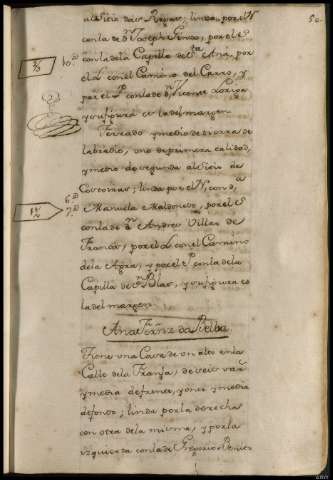 50
al sitio de Regas; linda, por el N
con la de D.n Joseph Pinzo, por el S.
10.ª con la de la Capilla de S.ta Ana, por
el L. con el Camino del Carro, y
por el P. con la de D.n Vicente Loriga
y su figura es la del margen
Ferrado y medio de tierra de
labradio, uno de primera calidad,
y medio de segunda al sitio de
Corcomar; linda por el N, con D.ª
6.ª
7.ª Manuela Maldonado, por el S.
con la de D.n Andres Villar de
Francos, por el L. con el Camino
de la Agra, y por el P. con la de la
Capilla del Pilar, y su figura es
la del margen
Ana Frñz da Pielba
Tiene una Casa de un alto en la
Calle de la Franja, de seis varas
y media de frente, y once y media
de fondo; linda por la derecha
con otra de la misma, y por la
izquierda con la de Gregorio Benitez